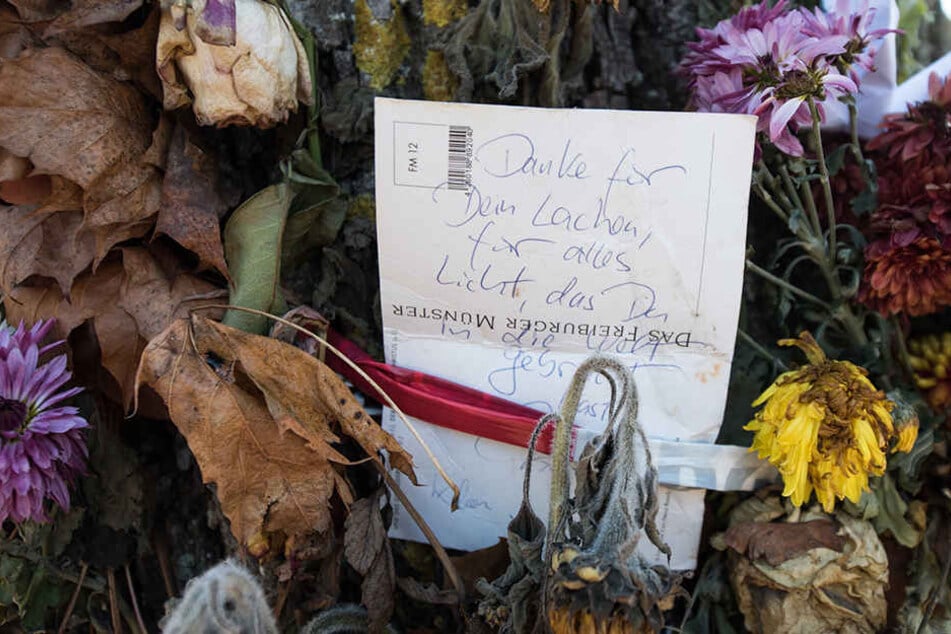 FM 12
Danke für
Dein Lachen,
für alles
Licht, das Du
DAS FREIBURGER MÜNSTER
in die Welt
gebracht